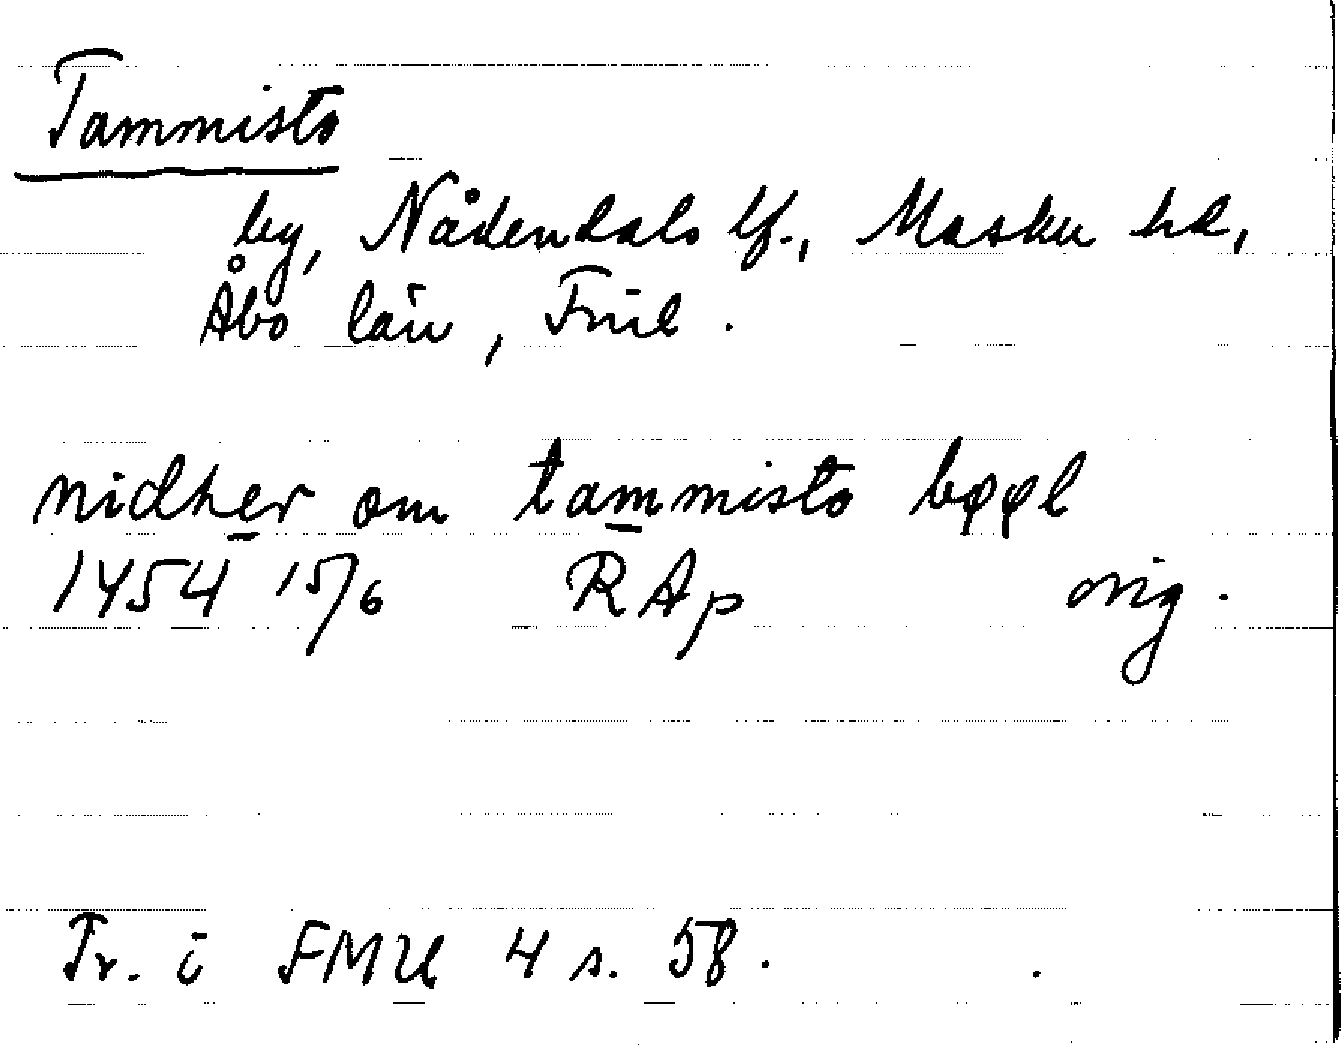 Tammisto
by, Nådendals lf., Masku hd,
Åbo län, Finl.
nidher om tammisto bøøl
1454 15/6 RAp orig.
Tr. i FMU 4 s. 58.